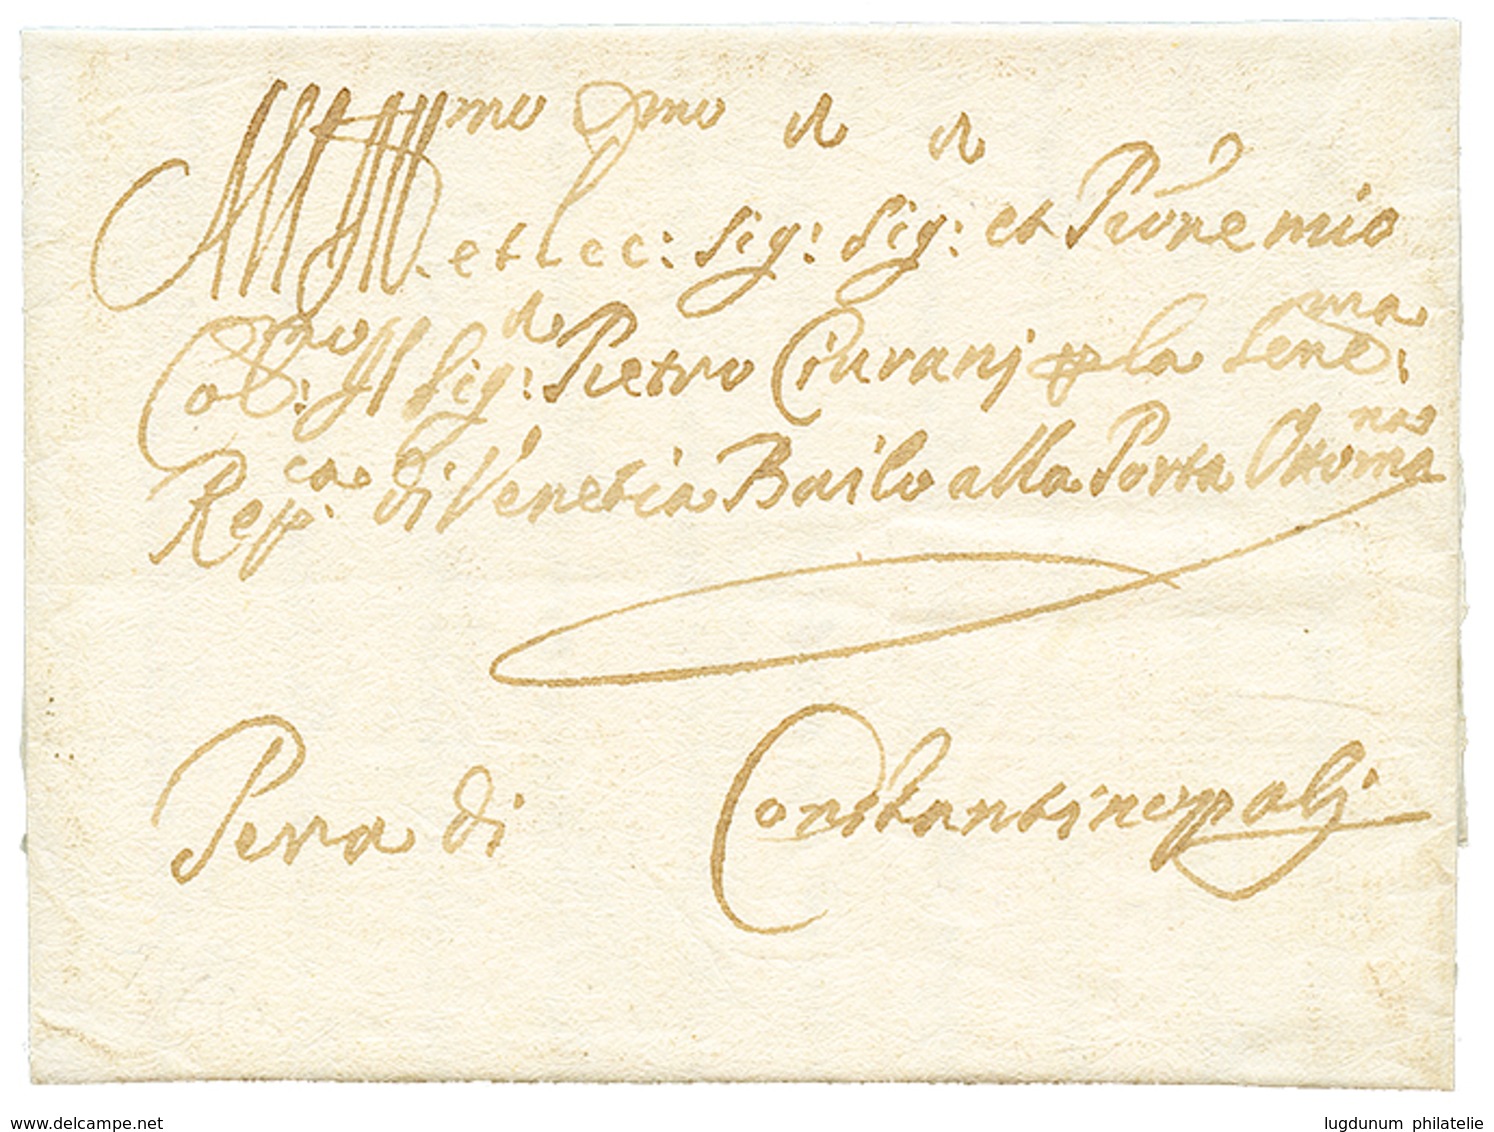 Ill.mo et Ecc.mo Sig.r Sig.r et P'rone mio
Col.mo Il Sig.r Pietro Ciuranj p la Seren.ma
Rep.ca di Venetia Bailo alla Porta Ottoma.na
Pera di Constantinopolj
www.delcampe.net
lugdunum philatelie